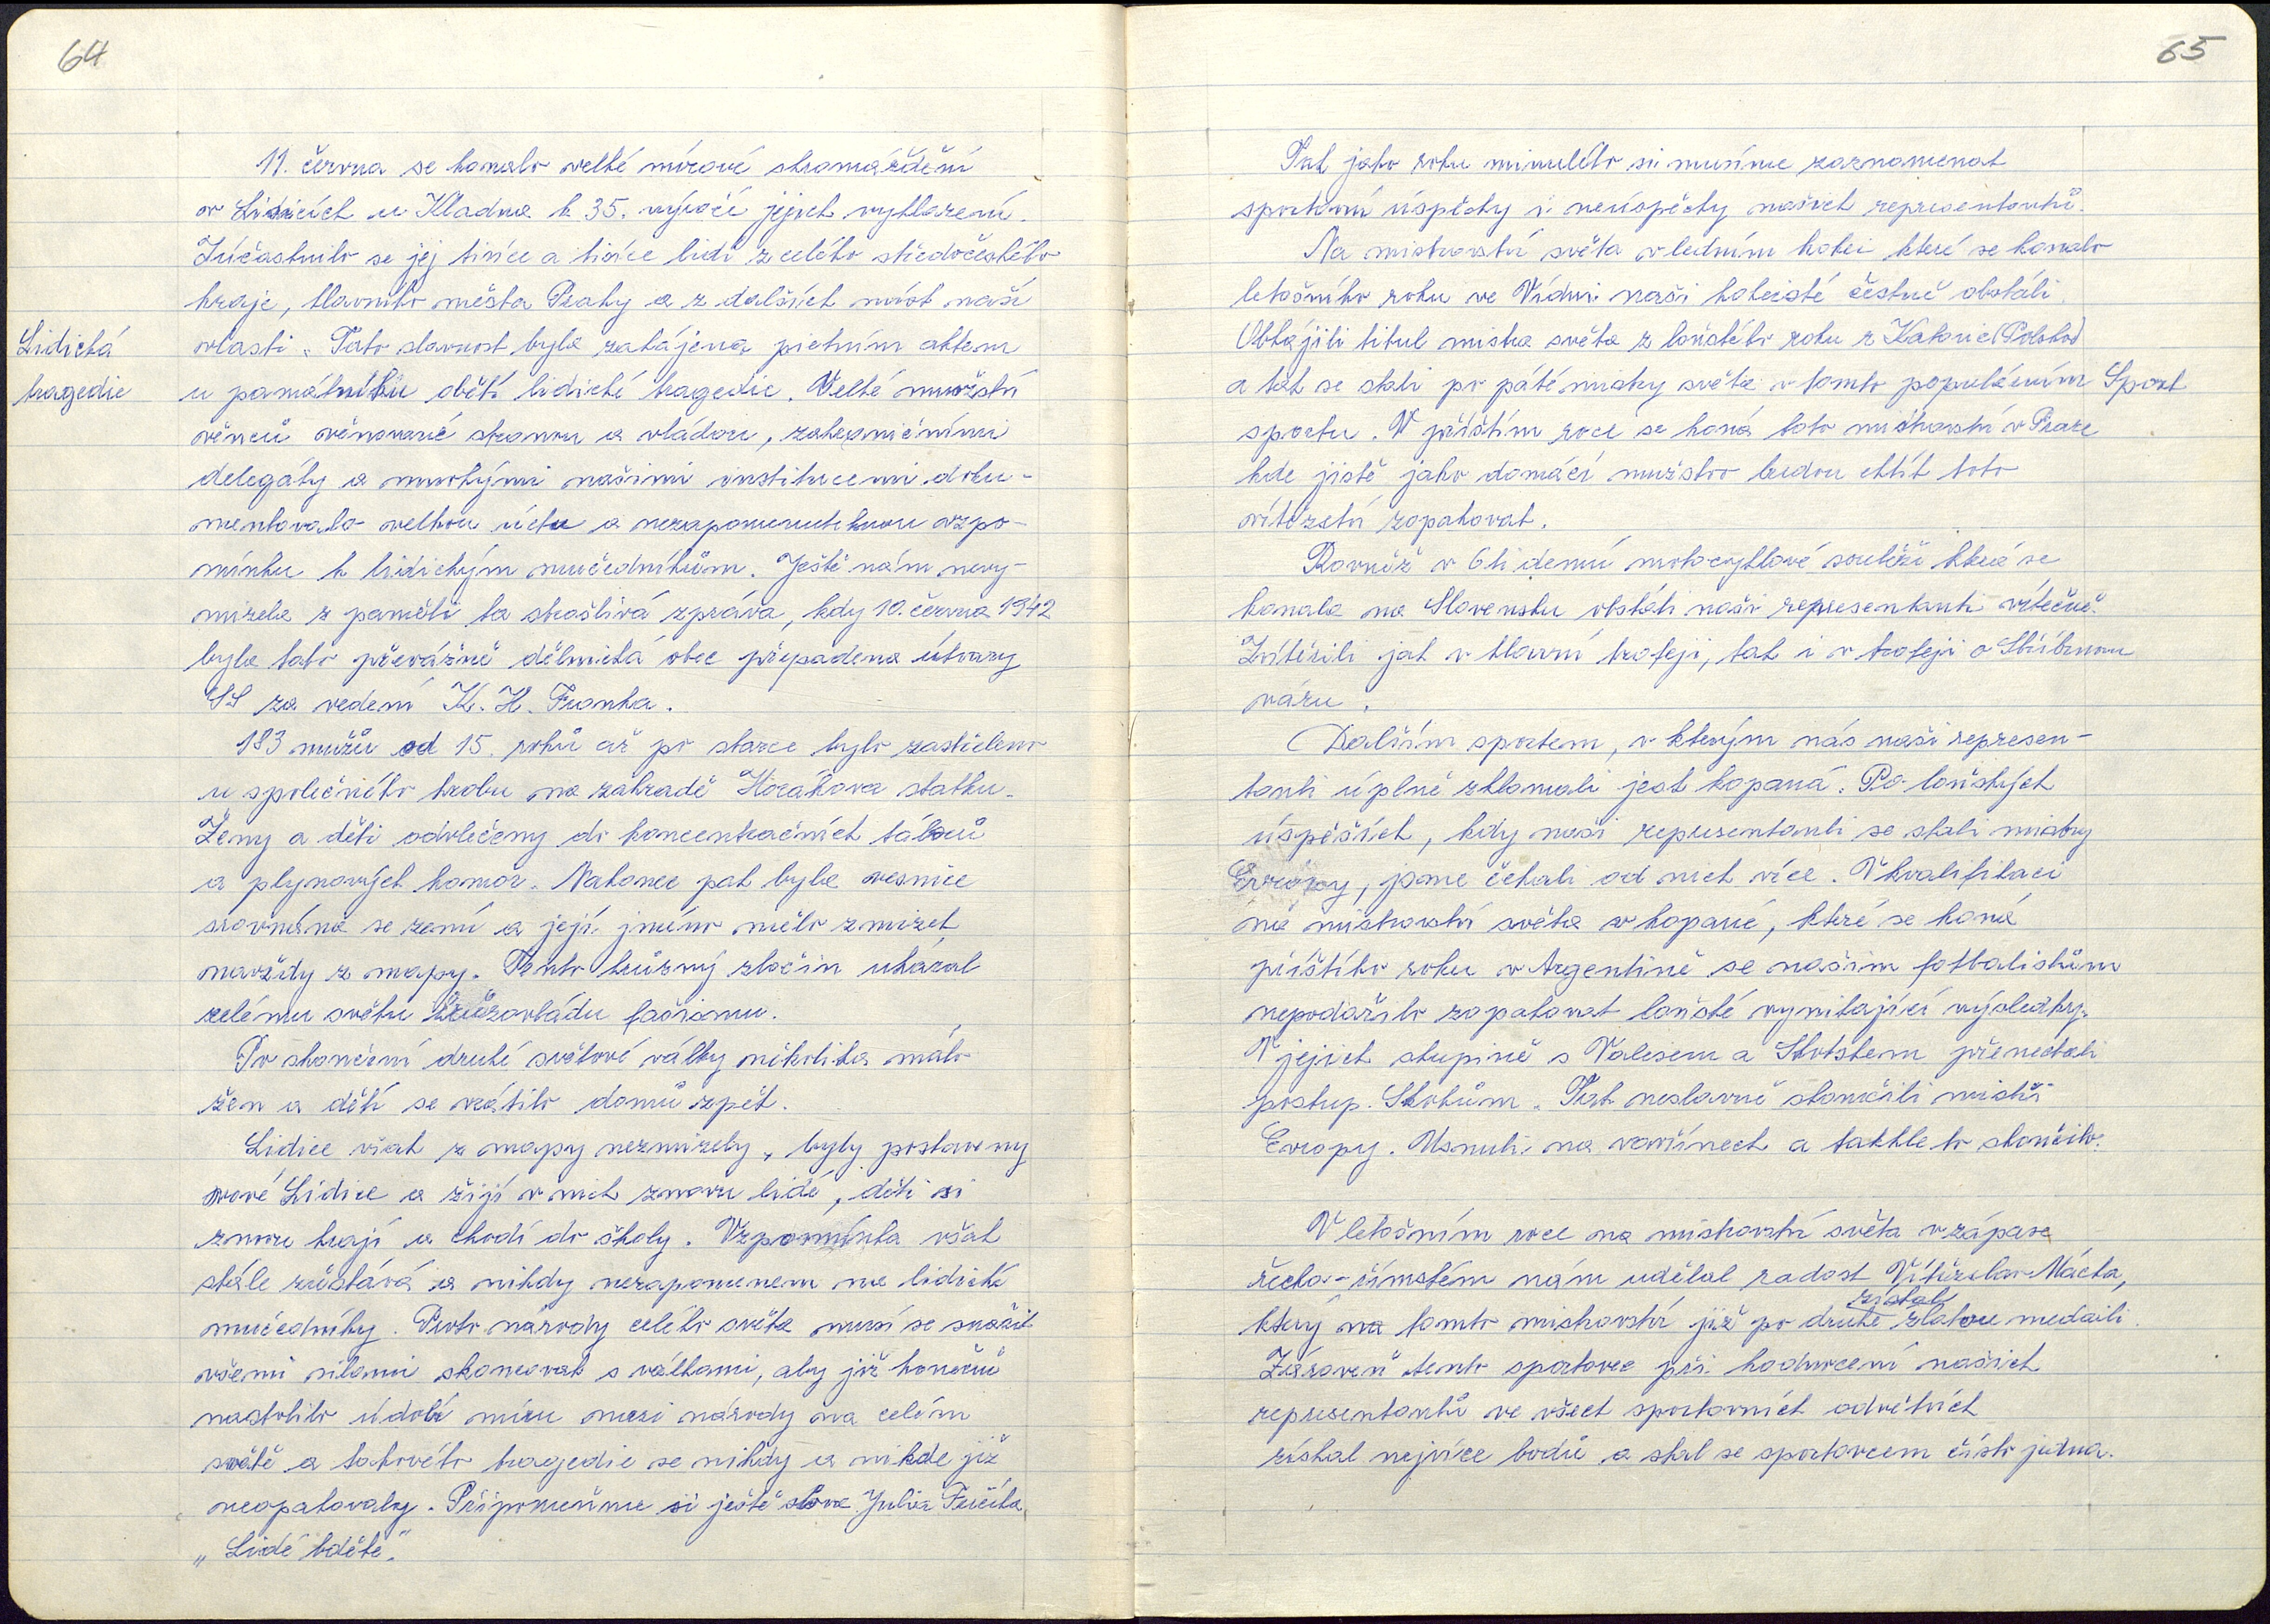 64
11. června se konalo velké mírové shromáždění
v Lidicích u Kladna k 35. výročí jejich vyhlazení.
Zúčastnilo se jej tisíce a tisíce lidí z celého středočeského
kraje, hlavního města Prahy a z dalších míst naší
Lidická
tragedie
vlasti. Tato slavnost byla zahájena pietním aktem
u památníku obětí lidické tragedie. Velké množství
věnců věnované stranou a vládou, zahraničními
delegáty a mnohými našimi institucemi doku-
mentovalo velkou úctu a nezapomenutelnou vzpo-
mínku k lidickým mučedníkům. Ještě nám nevy-
mizela z paměti ta strašlivá zpráva, kdy 10. června 1942
byla tato převážně dělnická obec přepadena útvary
SS za vedení K. H. Franka.
183 mužů od 15. roků až po starce bylo zastřeleno
u společného hrobu na zahradě Horákova statku.
Ženy a děti odvlečeny do koncentračních táborů
a plynových komor. Nakonec pak byla vesnice
srovnána se zemí a její jméno mělo zmizet
navždy z mapy. Tento hrůzný zločin ukázal
celému světu hrůzovládu fašismu.
Po skončení druhé světové války několika málo
žen a dětí se vrátilo domů zpět.
Lidice však z mapy nezmizely, byly postaveny
nové Lidice a žijí v nich znovu lidé, děti si
znovu hrají a chodí do školy. Vzpomínka však
stále zůstává a nikdy nezapomenem na lidické
mučedníky. Proto národy celého světa musí se snažit
všemi silami skoncovat s válkami, aby již konečně
nastolilo údobí míru mezi národy na celém
světě a takovéto tragedie se nikdy a nikde již
neopakovaly. Připomeňme si ještě slova Julia Fučíka
„Lidé bděte."
65
Tak jako roku minulého si musíme zaznamenat
sportovní úspěchy i neúspěchy našich representantů.
Na mistrovství světa v ledním hokei které se konalo
letošního roku ve Vídni naši hokeisté čestně obstáli.
Obhájili titul mistra světa z loňského roku z Katovic (Polsko)
a tak se stali po páté mistry světa v tomto populárním
Sport
sportu. V příštím roce se koná toto mistrovství v Praze
kde jistě jako domácí mužstvo budou chtít toto
vítězství zopakovat.
Rovněž v 6ti denní motocyklové soutěži která se
konala na Slovensku obstáli naši representanti výtečně.
Zvítězili jak v hlavní trofeji, tak i v trofeji o Stříbrnou
vázu.
Dalším sportem, v kterým nás naši represen-
tanti úplně zklamali jest kopaná. Po loňských
úspěších, kdy naši representanti se stali mistry
Evropy, jsme čekali od nich více. V kvalifikaci
na mistrovství světa v kopané, které se koná
příštího roku v Argentině se našim fotbalistům
nepodařilo zopakovat loňské vynikající výsledky.
V jejich skupině s Valesem a Skotskem přenechali
postup Skotům. Tak neslavně skončili mistři
Evropy. Usnuli na vavřínech a takhle to skončilo.
V letošním roce na mistrovství světa v zápase
řecko-římském nám udělal radost Vítězslav Mácha,
získal
který na tomto mistrovství již po druhé zlatou medaili.
Zároveň tento sportovec při hodnocení našich
representantů ve všech sportovních odvětvích
získal nejvíce bodů a stal se sportovcem číslo jedna.